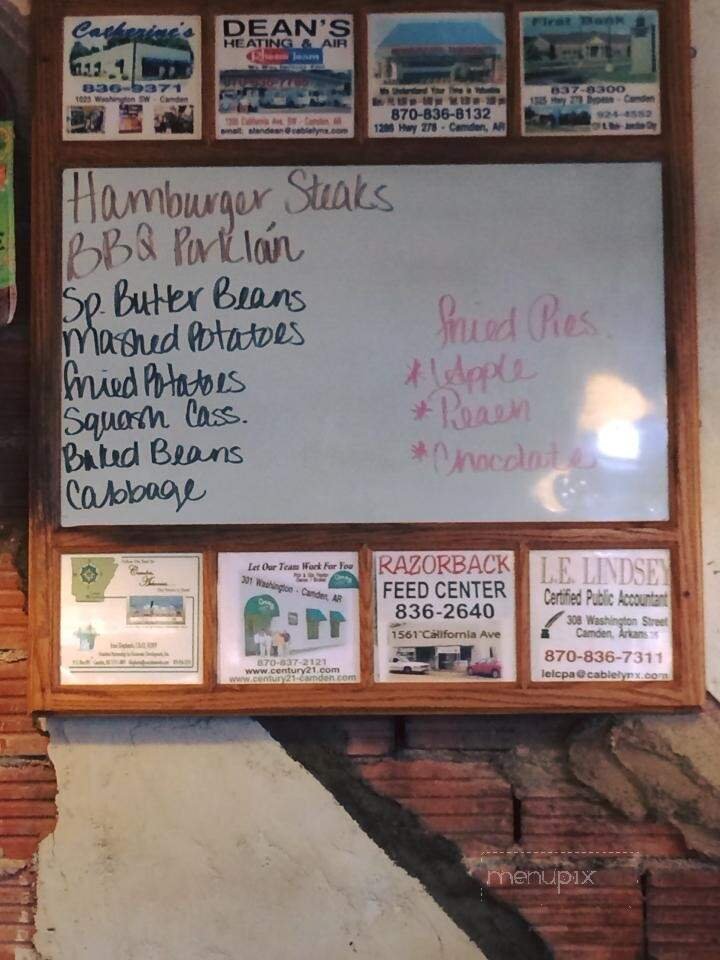 Catherine's
836-9371
1023 Washington SW - Camden
DEAN'S
HEATING & AIR
Rheem team
1200 California Ave. SW - Camden, AR
email: alandean@cablelynx.com
We Understand Your Time is Valuable
870-836-8132
1286 Hwy 278 - Camden, AR
First Bank
837-8300
1325 Hwy 278 Bypass - Camden
924-4552
Hamburger Steaks
BBQ Porkloin
Sp. Butter Beans
Mashed Potatoes
Fried Potatoes
Squash Cass.
Baked Beans
Cabbage
Fried Pies
*Apple
*Peach
*Chocolate
Camden,
Arkansas
Let Our Team Work For You
301 Washington - Camden, AR
870-837-2121
www.century21.com
www.century21-camden.com
RAZORBACK
FEED CENTER
836-2640
1561 California Ave
L.E. LINDSEY
Certified Public Accountant
308 Washington Street
Camden, Arkansas
870-836-7311
lelcpa@cablelynx.com
menupix